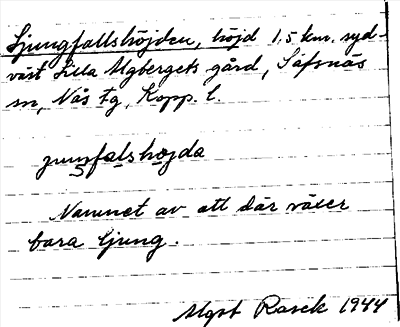 Ljungfallshöjden, höjd 1,5 km. syd-
väst Lilla Algbergets gård, Säfsnäs
sn, Nås tg, Kopp. l.
jungfalshøgda
Namnet av att där växer
bara ljung.
Algot 1944